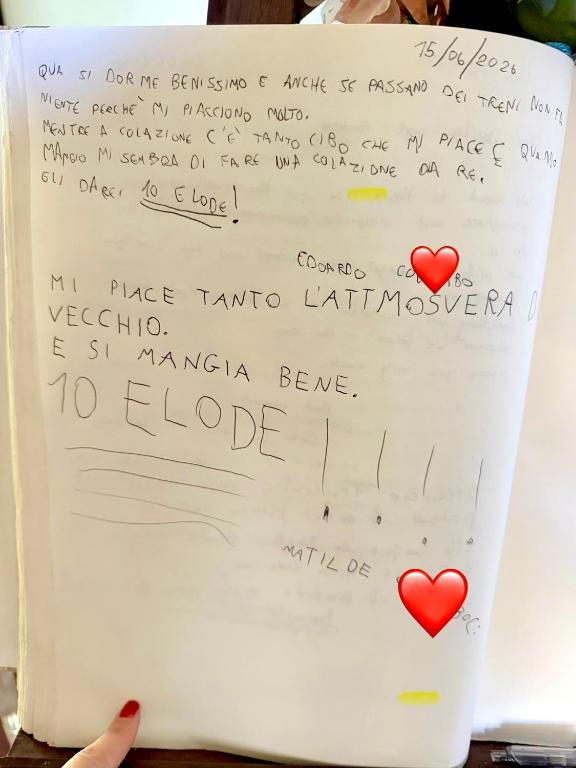 15/06/2026
QUA SI DORME BENISSIMO E ANCHE SE PASSANO DEI TRENI NON FA
NIENTE PERCHÈ MI PIACCIONO MOLTO.
MENTRE A COLAZIONE C'È TANTO CIBO CHE MI PIACE E QUANDO
MANGIO MI SEMBRA DI FARE UNA COLAZIONE DA RE.
GLI DAREI 10 E LODE!
EDOARDO
MI PIACE TANTO L'ATTMOSVERA D
VECCHIO.
E SI MANGIA BENE.
10 E LODE !!!!
MATILDE